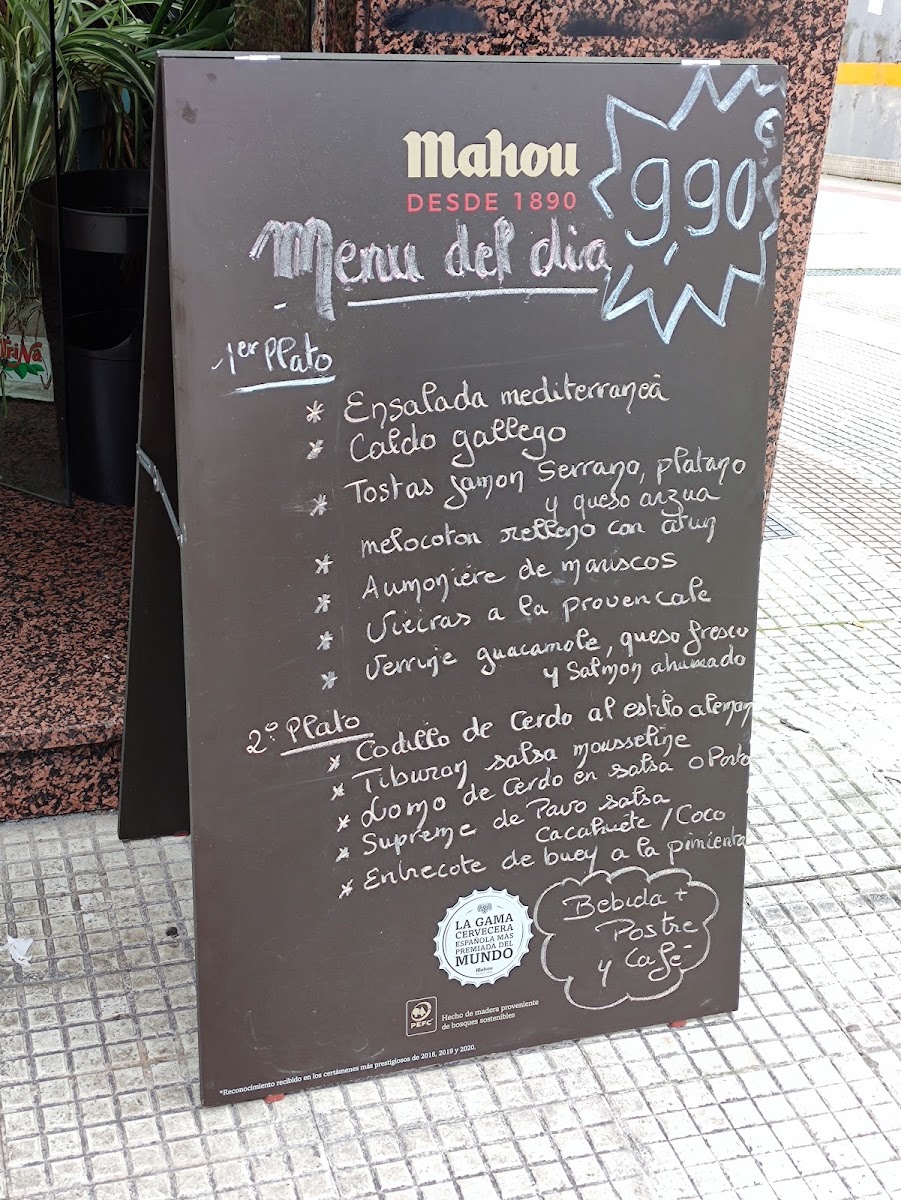 Mahou
DESDE 1890
9,90
€
Menu del dia
1er Plato
* Ensalada mediterranea
* Caldo gallego
* Tostas jamon Serrano, platano
y queso arzua
* melocoton relleno con atun
* Aumoniere de mariscos
* Vieiras a la provencale
* Verrine guacamole, queso fresco
y Salmon ahumado
2º Plato
* Codillo de Cerdo al estilo aleman
* Tiburon salsa mousseline
* Lomo de Cerdo en salsa o Porto
* Supreme de Pavo salsa
Cacahuete / Coco
* Entrecote de buey a la pimienta
Bebida +
Postre
y Café
LA GAMA
CERVECERA
ESPAÑOLA MÁS
PREMIADA DEL
MUNDO
Mahou
PEFC
Hecho de madera proveniente
de bosques sostenibles
*Reconocimiento recibido en los certámenes más prestigiosos de 2018, 2019 y 2020.